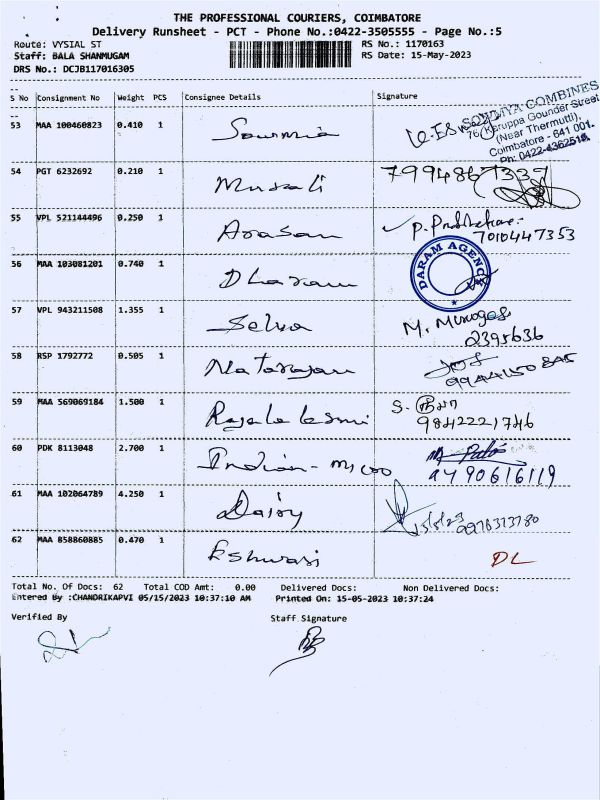 THE PROFESSIONAL COURIERS, COIMBATORE
Delivery Runsheet - PCT - Phone No.:0422-3505555 - Page No.:5
Route: VYSIAL ST RS No.: 1170163
Staff: BALA SHANMUGAM RS Date: 15-May-2023
DRS No.: DCJB117016305
S No Consignment No Weight PCS Consignee Details Signature
53 MAA 100460823 0.410 1 Sowmia
SOWMYA COMBINES
76, Karuppa Gounder Street
(Near Thermutti),
Coimbatore - 641 001.
Ph: 0422-4362518,
54 PGT 6232692 0.210 1 Murali 7994867337
55 VPL 521144496 0.250 1 Arasan
7010447353
56 MAA 103081201 0.740 1 Dharam DARAM AGENCY
57 VPL 943211508 1.355 1 Selva M. Muruges
2395636
58 RSP 1792772 0.505 1 Natarajan
9944150845
59 MAA 569069184 1.500 1 Rajalaksmi S.
9842221746
60 PDK 8113048 2.700 1 Indian - micoo
9490616119
61 MAA 102064789 4.250 1 Daisy 15/5/23 9976373780
62 MAA 858860885 0.470 1 Eshwari DL
Total No. Of Docs: 62 Total COD Amt: 0.00 Delivered Docs: Non Delivered Docs:
Entered By :CHANDRIKAPVI 05/15/2023 10:37:10 AM Printed On: 15-05-2023 10:37:24
Verified By Staff Signature